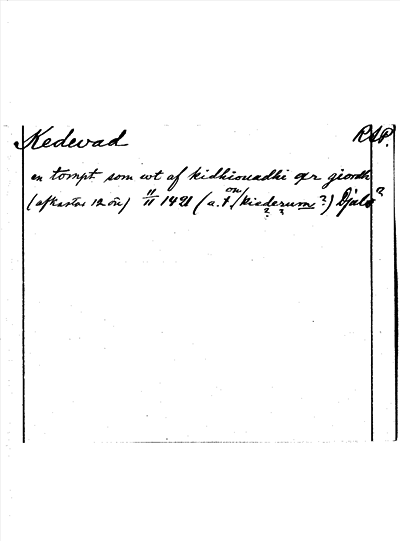 Kedevad RAP.
en tompt som wt af kidhiouadhi ær giordh
(afkastar 12 öre) 11/11 1421 (a.t. on kiederum ?) Djulö ?
? ?